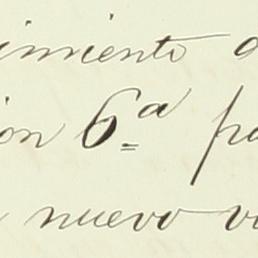 imiento
ion 6ª pa
nuevo v